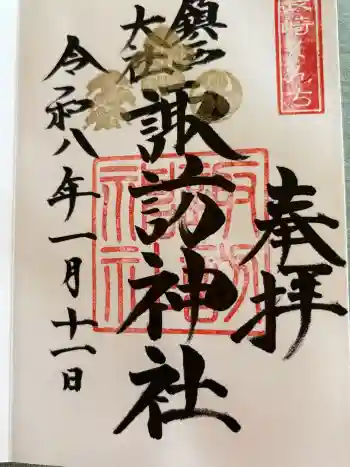 奉拝
鎮西
大社
諏訪神社
令和八年一月十一日